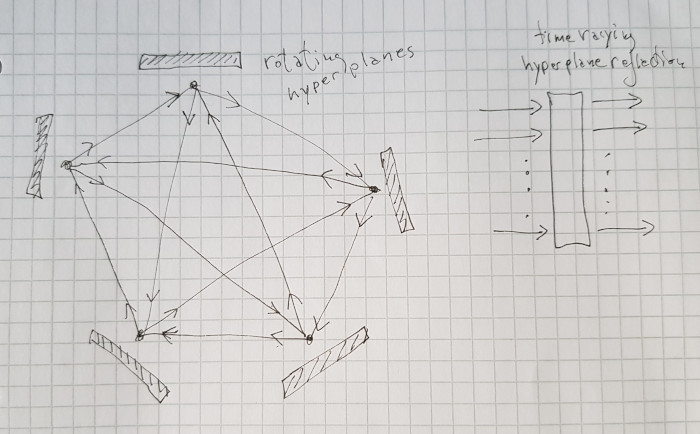 rotating
hyperplanes
time varying
hyperplane reflection